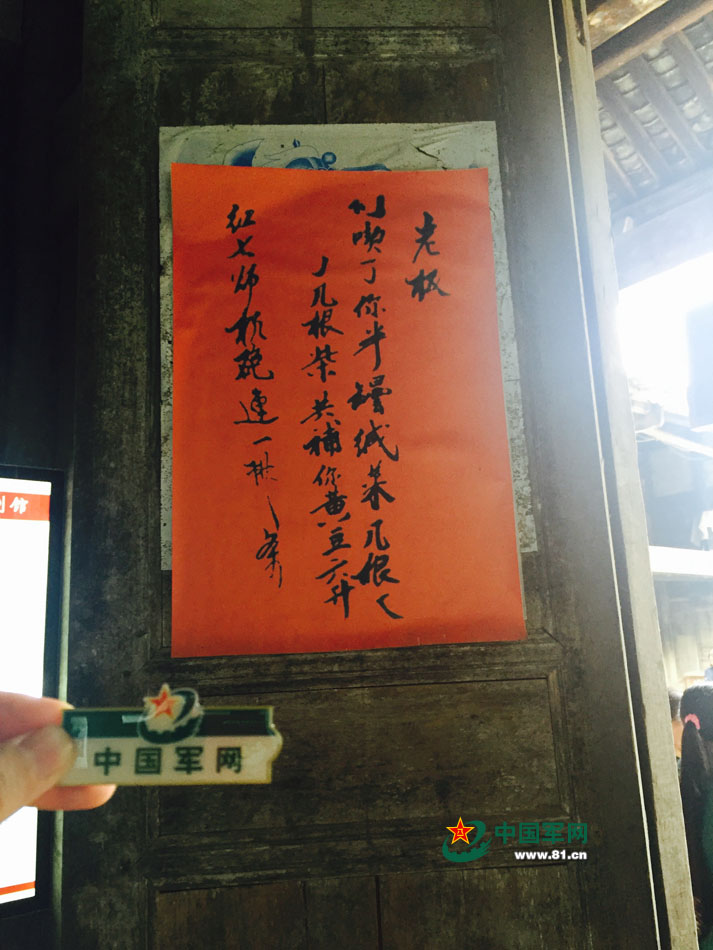 老板
喫了你半罎菜几根
几根柴共補你黄豆六升
红七师机炮连一排条
馆
中国军网
中国军网
www.81.cn